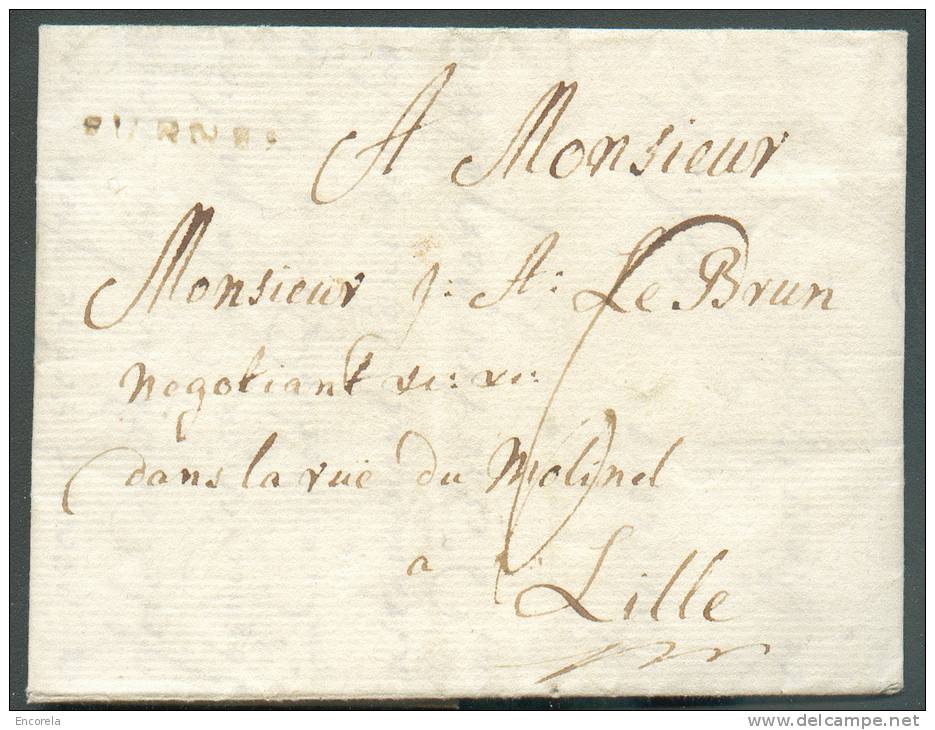 FURNES
A Monsieur
Monsieur j: A: Le Brun
Negotiant
dans la rue du Molinel
a
Lille
Encorela
www.delcampe.net